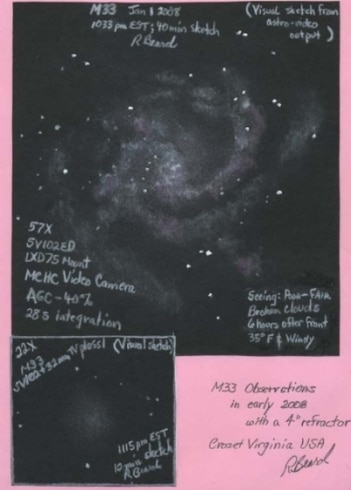 M33 Jan 1 2008
1033 pm EST; 40 min sketch
R Beard
(Visual sketch from
astro-video
output)
57X
SV102ED
LXD75 Mount
MCHC Video Camera
AGC-40%
28s integration
Seeing: Poor-FAIR
Broken clouds
6 hours after front
35°F & Windy
22X
M33
SV102+32mm TV plossl (Visual sketch)
1115 pm EST
10 min sketch
R. Beard
M33 Observations
in early 2008
with a 4" refractor
Crozet Virginia USA
R Beard